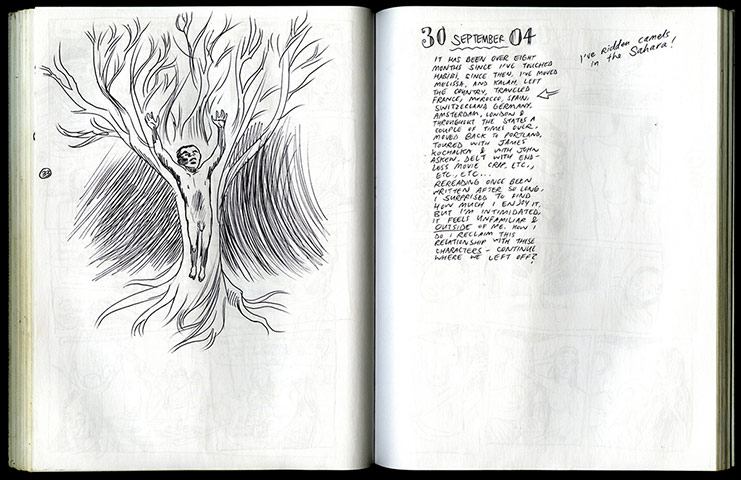 33
30 SEPTEMBER 04
I've ridden camels
in the Sahara!
IT HAS BEEN OVER EIGHT
MONTHS SINCE I'VE TOUCHED
HABIBI. SINCE THEN, I'VE MOVED
MELISSA, AND KALAH, LEFT
THE COUNTRY, TRAVELED
FRANCE, MOROCCO, SPAIN,
SWITZERLAND GERMANY,
AMSTERDAM, LONDON &
THROUGHOUT THE STATES A
COUPLE OF TIMES OVER,
MOVED BACK TO PORTLAND,
TOURED WITH JAMES
KOCHALKA & WITH JOHN
ASKEW, DELT WITH END-
LESS MOVIE CRAP, ETC.,
ETC., ETC...
REREADING ONCE BEEN
WRITTEN AFTER SO LONG,
I SURPRISED TO FIND
HOW MUCH I ENJOY IT.
BUT I'M INTIMIDATED.
IT FEELS UNFAMILIAR &
OUTSIDE OF ME. HOW
DO I RECLAIM THIS
RELATIONSHIP WITH THESE
CHARACTERS - CONTINUE
WHERE WE LEFT OFF?